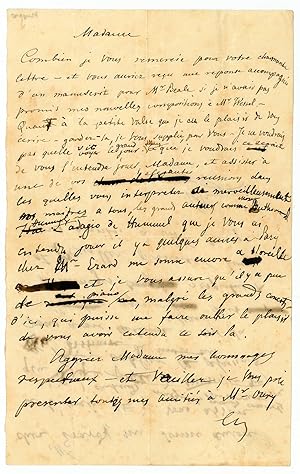 Madame
Combien je vous remercie pour votre charmante
lettre – et vous auriez reçu une réponse accompagnée
d'un manuscrit pour Mr Beale si je n'avais pas
promis mes nouvelles compositions à Mr Wessel –
Quant à la petite valse que j'ai eu le plaisir de vous
écrire, gardez-la, je vous supplie pour vous – Je ne voudrais
pas qu'elle vit le grand jour. Mais ce que je voudrais
de vous l'entendre jouer Madame, et assister à
une de vos réunions dans
lesquelles vous interprétez si merveilleusement
nos maîtres à tous, les grands auteurs comme
Hummel. L'adagio de Hummel que je vous ai
entendu jouer il y a quelques années à Paris
chez Mr Erard me sonne encore à l'oreille
et je vous assure qu'il y a peu
de malgré les grands
d'ici, qui puisse me faire oublier le plaisir
de vous avoir entendu ce soir-là.
Agréez Madame mes hommages
respectueux – et veuillez je vous prie
présenter toutes mes amitiés à Mr Oury
Ch